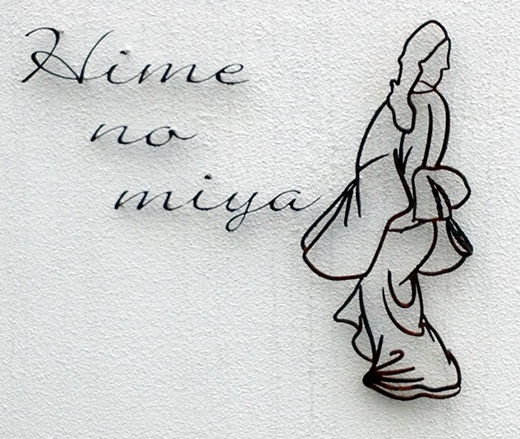 Hime
no
miya